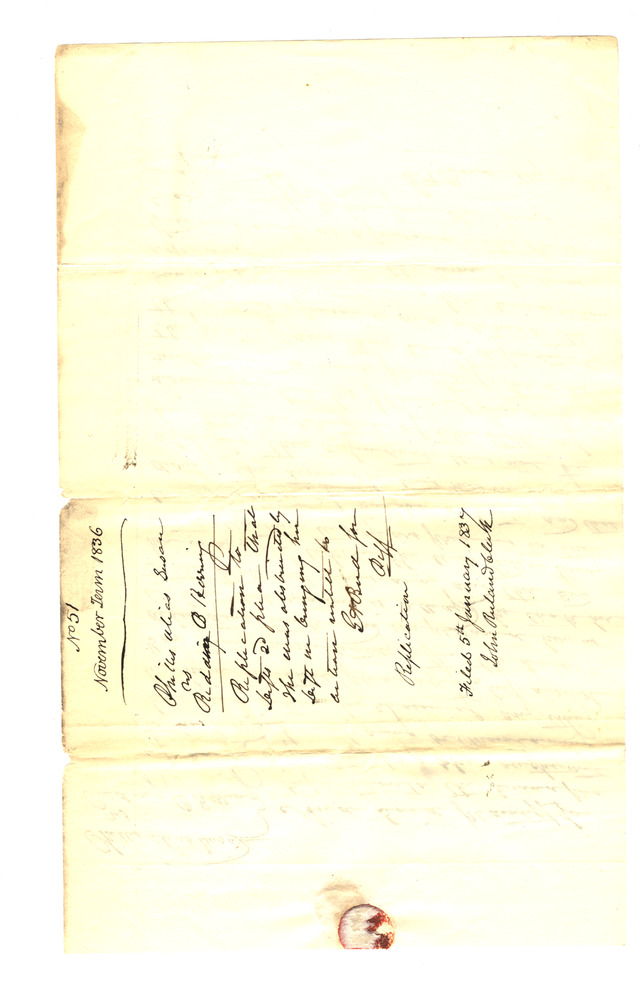 No 51
November Term 1836
Phillis alias Susan
vs
Redding B Herring
Replication to
defts 2d plea that
she was obstructed by
deft in bringing her
action untill &c
for
Plff
Replication
Filed 5th January 1837
John Ruland Clerk